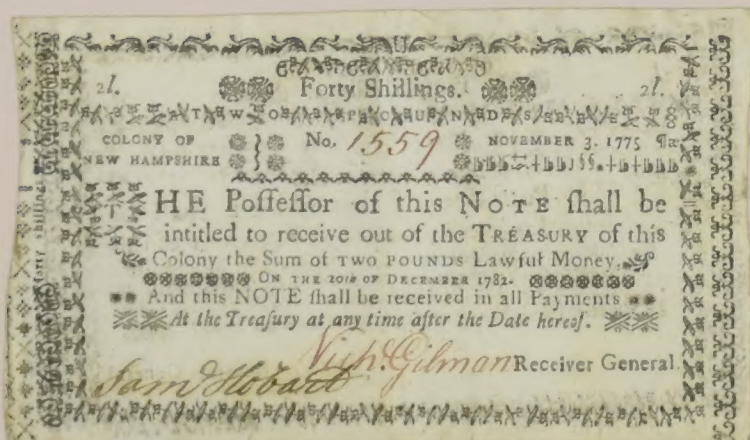 2l. Forty Shillings. 2l.
TWO POUNDS
COLONY OF NEW HAMPSHIRE
No. 1559
NOVEMBER 3. 1775
THE Poſſeſſor of this NOTE ſhall be
intitled to receive out of the TREASURY of this
Colony the Sum of TWO POUNDS Lawful Money,
ON THE 20th OF DECEMBER 1782.
And this NOTE ſhall be received in all Payments
At the Treaſury at any time after the Date hereof.
Nichs. Gilman Receiver General.
Sam Hobart
forty shillings